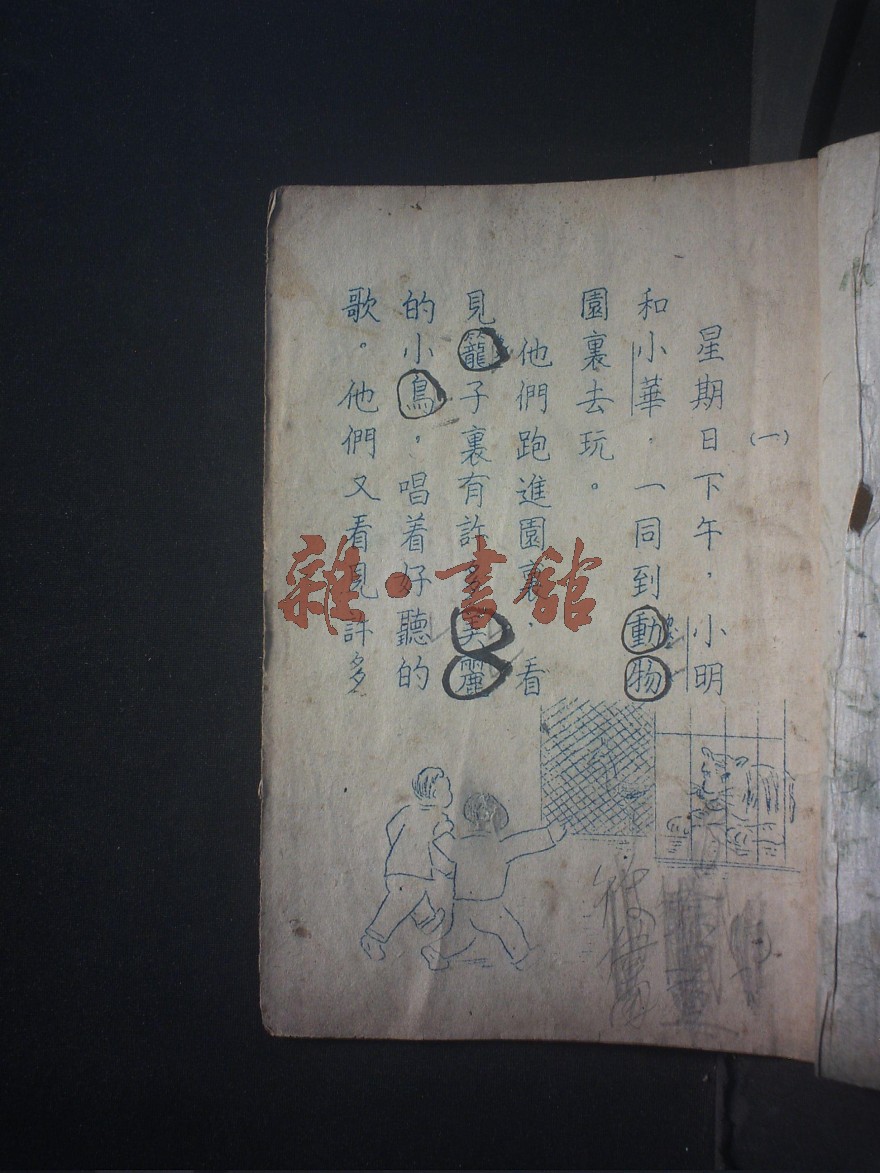 (一)
星期日下午,小明
和小華,一同到動物
園裏去玩。
他們跑進園裏,看
見籠子裏有許多美麗
的小鳥,唱着好聽的
歌。他們又看見許多
雜·書館